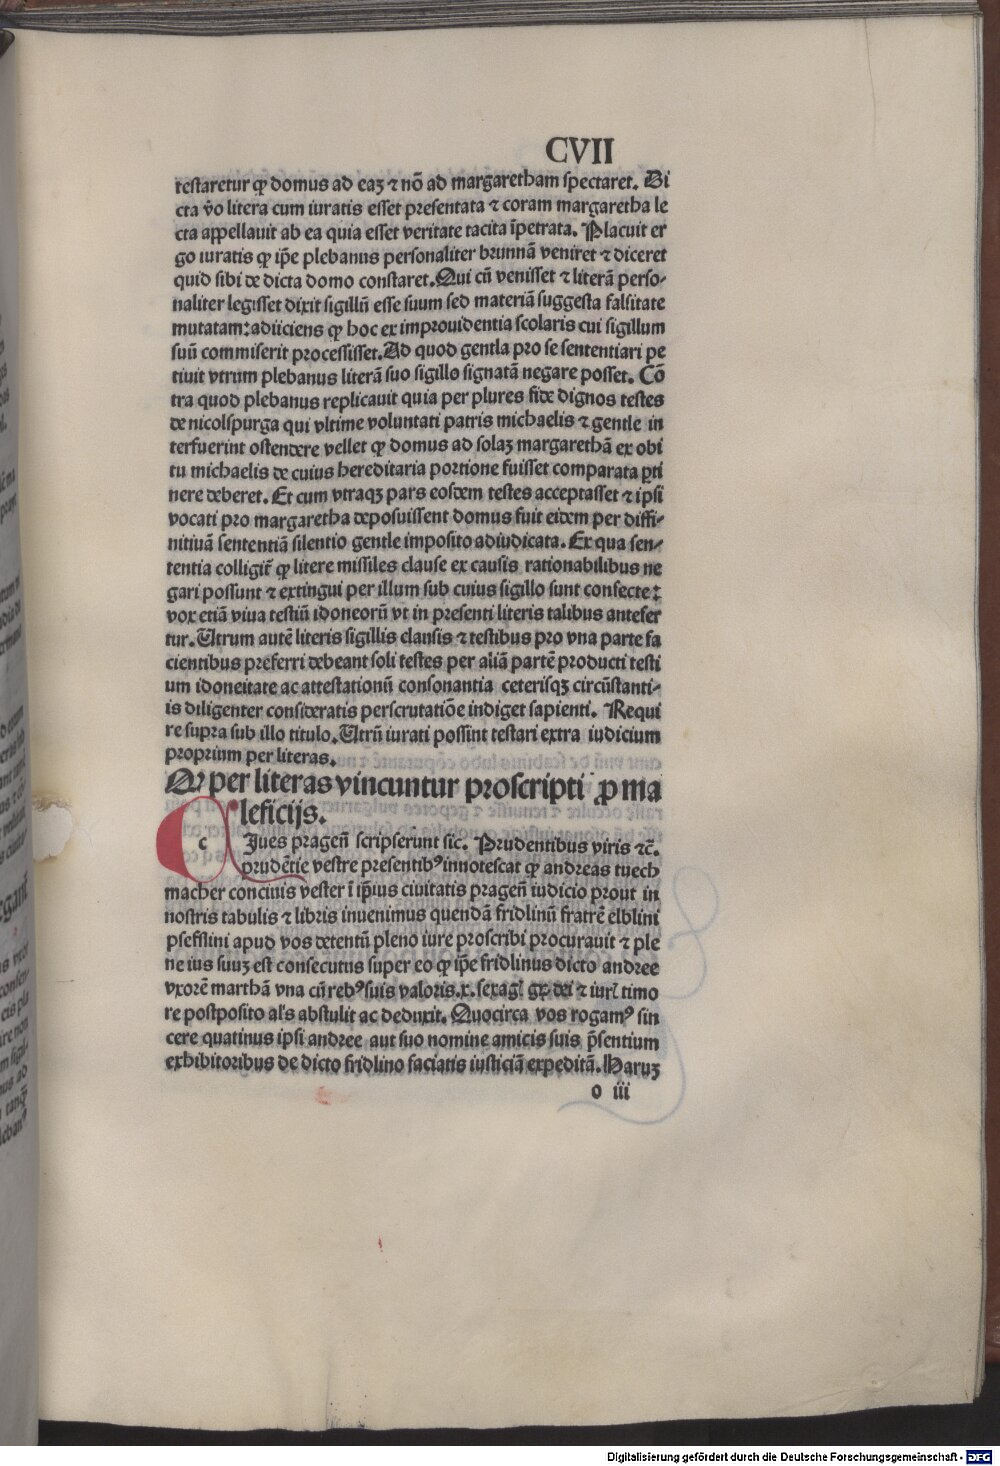 CVII
testaretur ꝙ domus ad eaꝫ ⁊ nō ad margaretham spectaret. Di
cta v̄o litera cum iuratis esset presentata ⁊ coram margaretha le
cta appellauit ab ea quia esset veritate tacita īpetrata. Placuit er
go iuratis ꝙ ip̄e plebanus personaliter brunnā veniret ⁊ diceret
quid sibi de dicta domo constaret. Qui cū venisset ⁊ literā perso⸗
naliter legisset dixit sigillū esse suum sed materiā suggesta falsitate
mutatam: adiiciens ꝙ hoc ex improuidentia scolaris cui sigillum
suū commiserit processisset. Ad quod gentla pro se sententiari pe
tiuit vtrum plebanus literā suo sigillo signatā negare posset. Cō
tra quod plebanus replicauit quia per plures fide dignos testes
de nicolspurga qui vltime voluntati patris michaelis ⁊ gentle in
terfuerint ostendere vellet ꝙ domus ad solaꝫ margarethā ex obi
tu michaelis de cuius hereditaria portione fuisset comparata ꝑti
nere deberet. Et cum vtraqꝫ pars eosdem testes acceptasset ⁊ ipsi
vocati pro margaretha deposuissent domus fuit eidem per diffi⸗
nitiuā sententiā silentio gentle imposito adiudicata. Ex qua sen⸗
tentia colligit̄ ꝙ litere missiles clause ex causis rationabilibus ne
gari possunt ⁊ extingui per illum sub cuius sigillo sunt confecte:
vox etiā viua testiū idoneorū vt in presenti literis talibus antefer
tur. Utrum autē literis sigillis clausis ⁊ testibus pro vna parte fa
cientibus preferri debeant soli testes per aliā partē producti testi
um idoneitate ac attestationū consonantia ceterisqꝫ circūstanti⸗
is diligenter consideratis perscrutatiōe indiget sapienti. Requi
re supra sub illo titulo. Utrū iurati possint testari extra iudicium
proprium per literas.
Q per literas vincuntur proscripti ꝓ ma
leficijs.
c Iues pragen̄ scripserunt sic. Prudentibus viris ⁊c̄.
prudētie vestre presentibꝰ innotescat ꝙ andreas tuech
macher conciuis vester ī ip̄ius ciuitatis pragen̄ iudicio prout in
nostris tabulis ⁊ libris inuenimus quendā fridlinū fratrē elblini
psefflini apud vos detentū pleno iure proscribi procurauit ⁊ ple
ne ius suuꝫ est consecutus super eo ꝙ ip̄e fridlinus dicto andree
vxorē marthā vna cū rebꝰ suis valoris .x. sexaḡ gꝝ dei ⁊ iur̄ timo
re postposito al̄s abstulit ac deduxit. Quocirca vos rogamꝰ sin
cere quatinus ipsi andree aut suo nomine amicis suis p̄sentium
exhibitoribus de dicto fridlino faciatis iusticiā expeditā. Haruꝫ
o iii
Digitalisierung gefördert durch die Deutsche Forschungsgemeinschaft - DFG